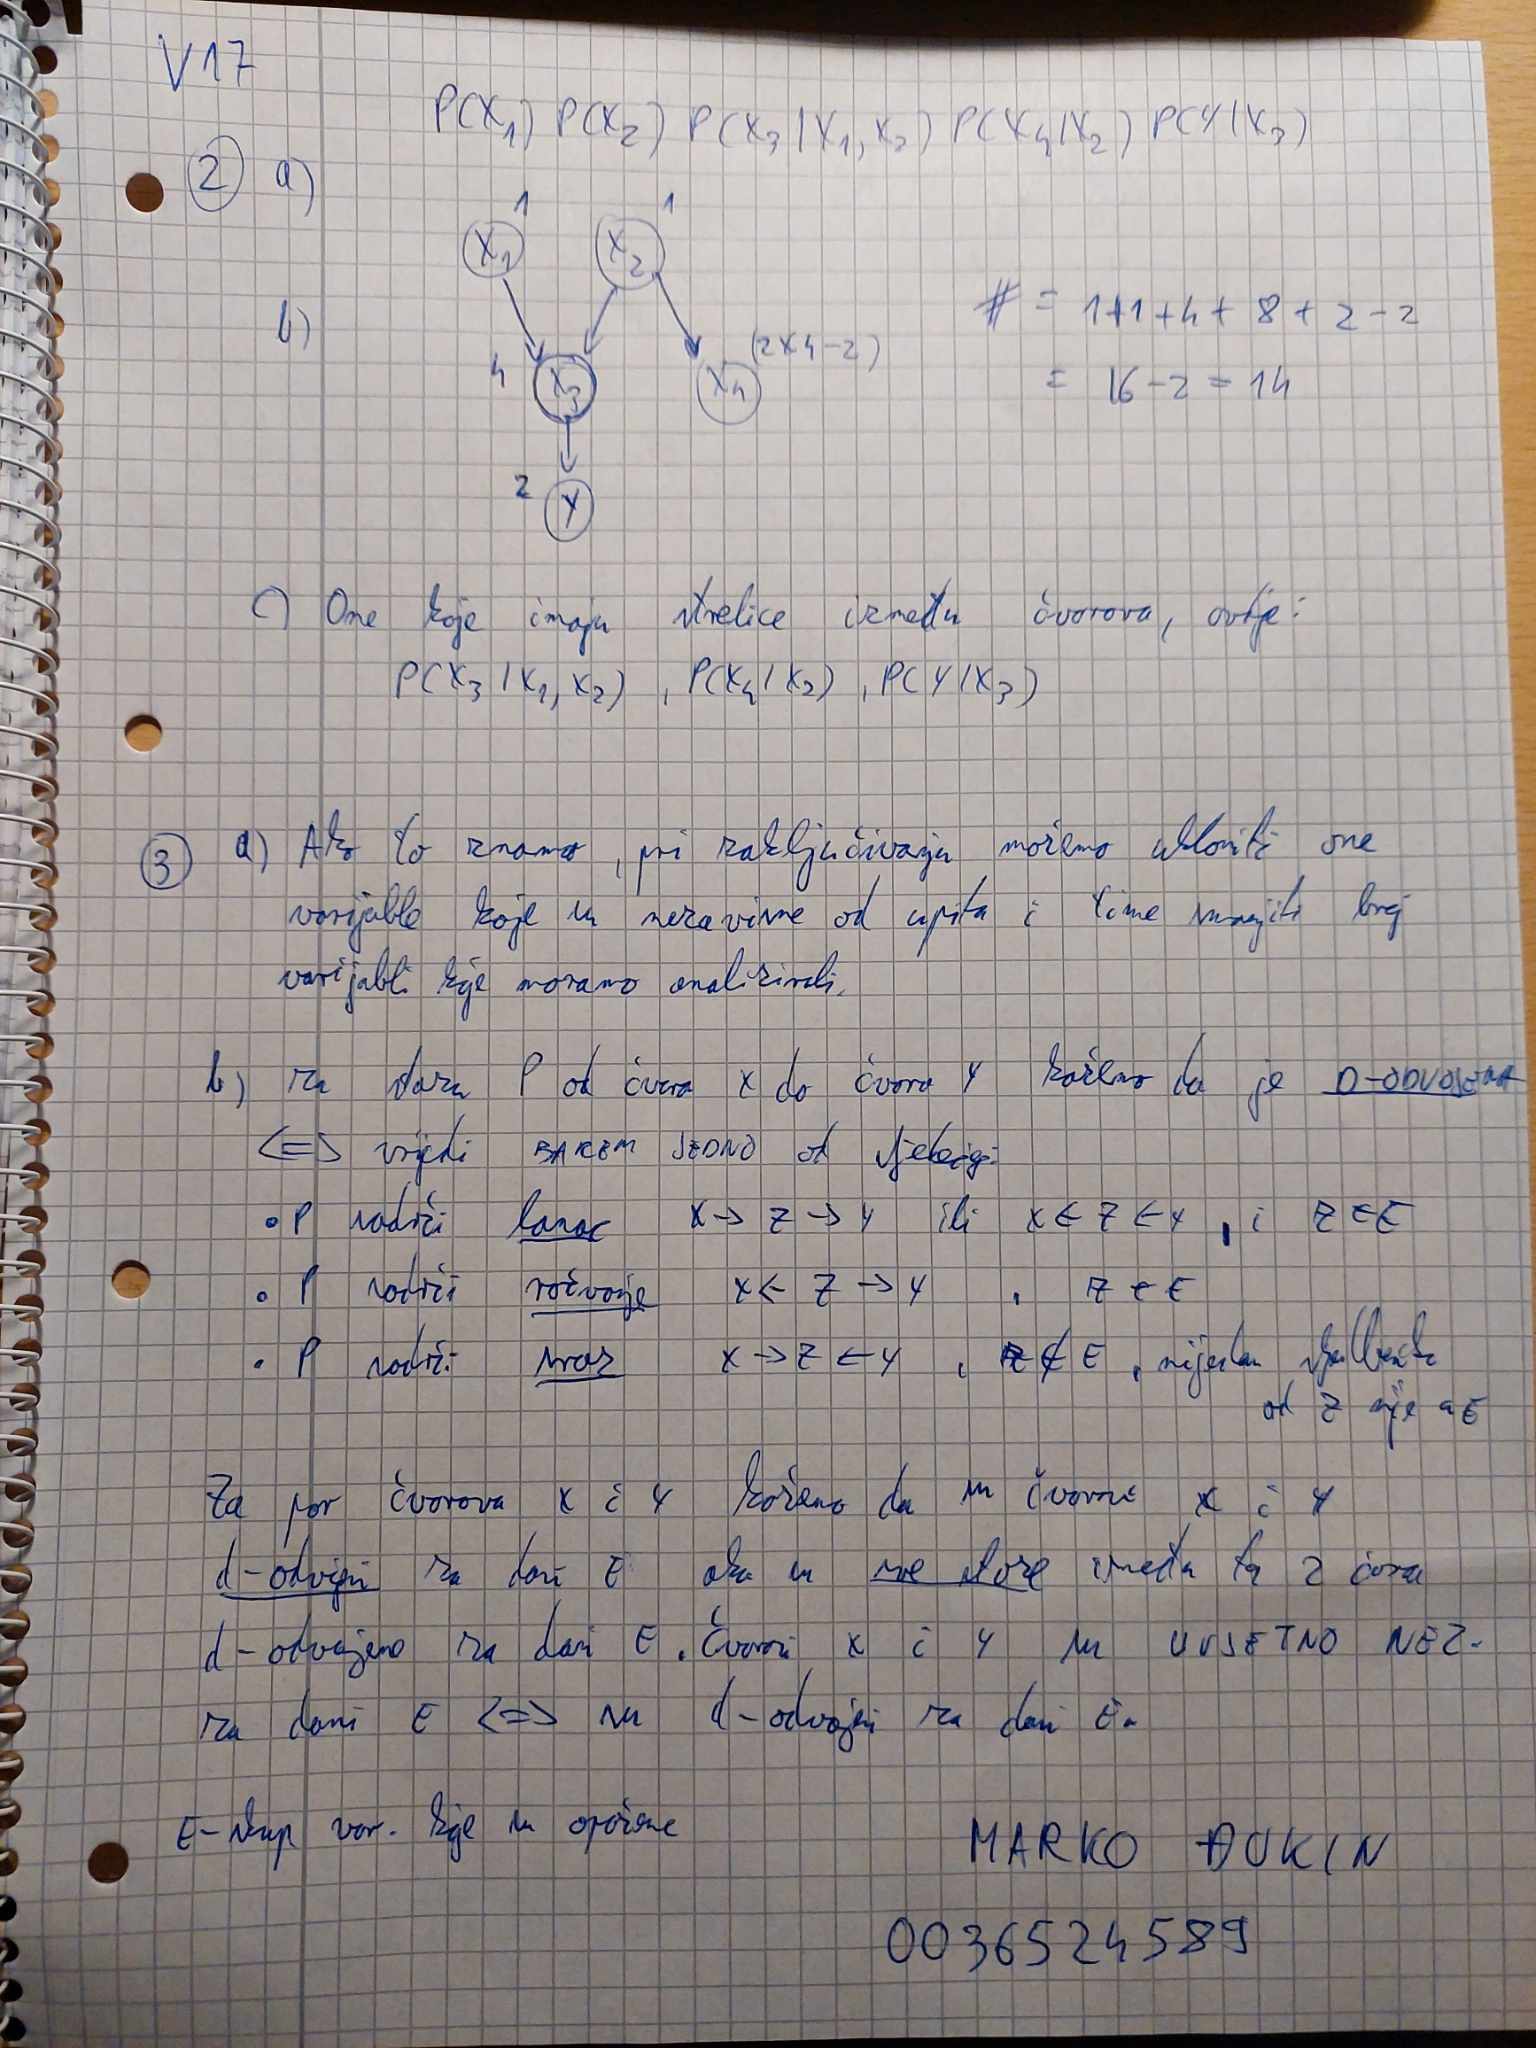 V17
P(X₁) P(X₂) P(X₃|X₁,X₂) P(X₄|X₂) P(Y|X₃)
② a)
1 1
X₁ X₂
b) # = 1+1+4+8+2-2
(2×4-2)
4 X₃ X₄ = 16-2=14
2 Y
c) One koje imaju strelice između čvorova, ovdje:
P(X₃|X₁,X₂), P(X₄|X₂), P(Y|X₃)
③ a) Ako to znamo, pri zaključivanju možemo ukloniti one
varijable koje su nezavisne od upita i time smanjiti broj
varijabli koje moramo analizirati.
b) za stazu P od čvora X do čvora Y kažemo da je D-ODVOJENA
<=> vrijedi BAREM JEDNO od sljedećeg:
• P sadrži lanac X → Z → Y ili X ← Z ← Y, i Z ∈ E
• P sadrži račvanje X ← Z → Y, Z ∈ E
• P sadrži sraz X → Z ← Y, Z ∉ E, nijedan sljedbenik
od Z nije u E
Za par čvorova X i Y kažemo da su čvorovi X i Y
d-odvojeni za dani E ako su sve staze između ta 2 čvora
d-odvojene za dani E. Čvorovi X i Y su UVJETNO NEZ.
za dani E <=> su d-odvojeni za dani E.
E-skup var. koje su opažene
MARKO ĐUKIN
0036524589